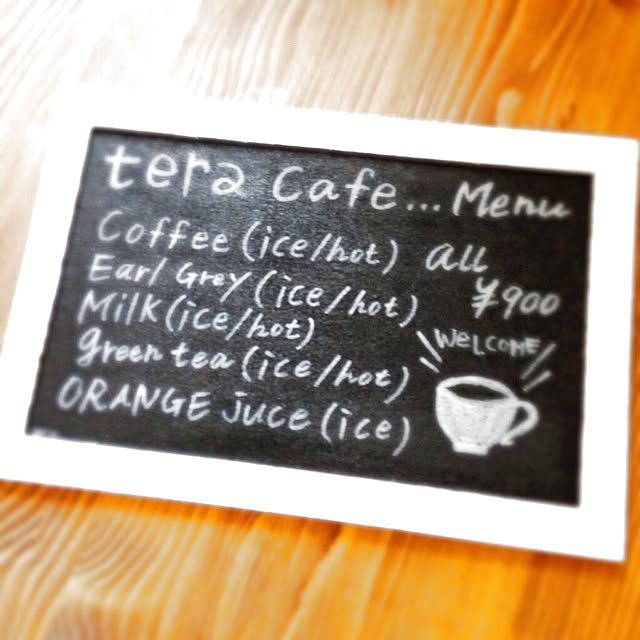 tera Cafe... Menu
Coffee (ice/hot) all
Earl Grey (ice/hot) ¥900
Milk (ice/hot)
green tea (ice/hot)
ORANGE juce (ice)
WELCOME